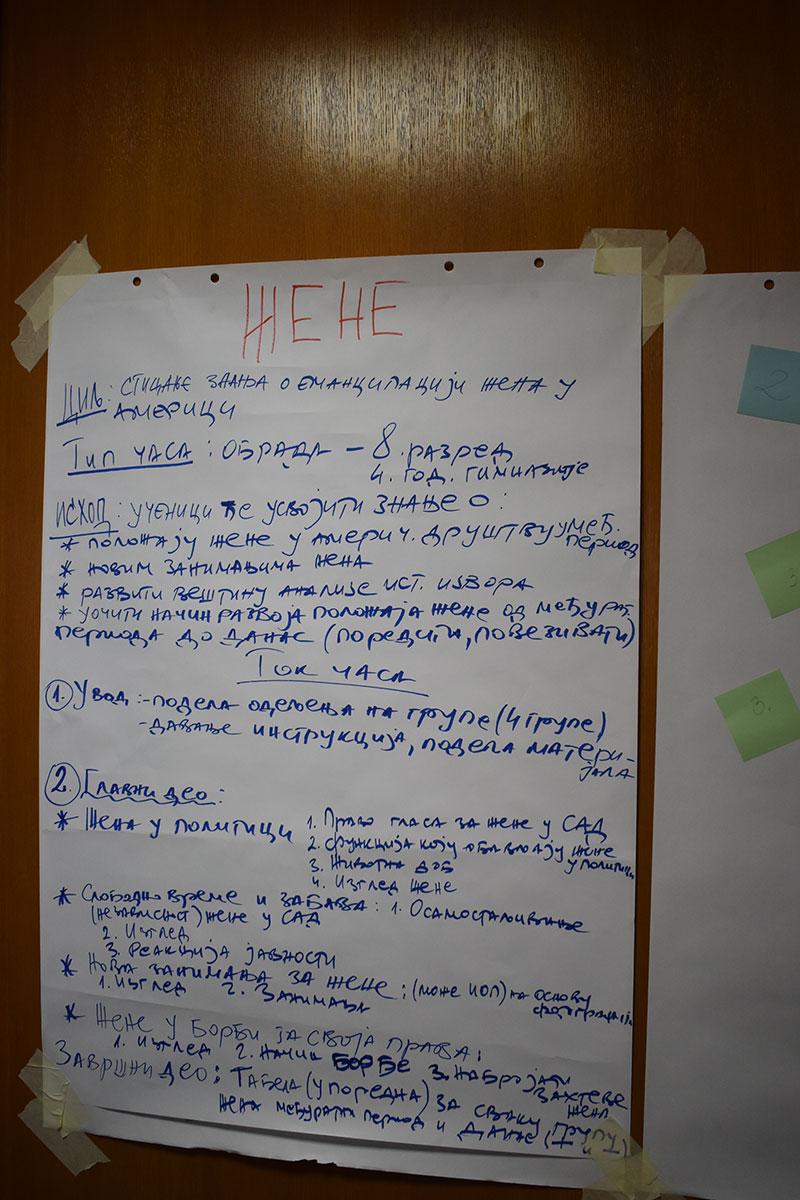 ЖЕНЕ
ЦИЉ: СТИЦАЊЕ ЗНАЊА О ЕМАНЦИПАЦИЈИ ЖЕНА У
АМЕРИЦИ
ТИП ЧАСА: ОБРАДА – 8. РАЗРЕД
4. ГОД. ГИМНАЗИЈЕ
ИСХОД: УЧЕНИЦИ ЋЕ УСВОЈИТИ ЗНАЊЕ О:
* ПОЛОЖАЈУ ЖЕНЕ У АМЕРИЧ. ДРУШТВУ У МЕЂ.
ПЕРИОД
* НОВИМ ЗАНИМАЊИМА ЖЕНА
* РАЗВИТИ ВЕШТИНУ АНАЛИЗЕ ИСТ. ИЗВОРА
* УОЧИТИ НАЧИН РАЗВОЈА ПОЛОЖАЈА ЖЕНЕ ОД МЕЂУРАТ.
ПЕРИОДА ДО ДАНАС (ПОРЕДИТИ, ПОВЕЗИВАТИ)
ТОК ЧАСА
1. УВОД: - ПОДЕЛА ОДЕЉЕЊА НА ГРУПЕ (4 ГРУПЕ)
- ДАВАЊЕ ИНСТРУКЦИЈА, ПОДЕЛА МАТЕРИ-
ЈАЛА
2. ГЛАВНИ ДЕО:
* ЖЕНА У ПОЛИТИЦИ 1. ПРАВО ГЛАСА ЗА ЖЕНЕ У САД
2. ФУНКЦИЈА КОЈУ ОБАВЉАЈУ ЖЕНЕ
У ПОЛИТИЦИ
3. ЖИВОТНА ДОБ
4. ИЗГЛЕД ЖЕНЕ
* СЛОБОДНО ВРЕМЕ И ЗАБАВА: 1. ОСАМОСТАЉИВАЊЕ
(НЕЗАВИСНОСТ) ЖЕНЕ У САД
2. ИЗГЛЕД
3. РЕАКЦИЈА ЈАВНОСТИ
* НОВА ЗАНИМАЊА ЗА ЖЕНЕ: (МОЖЕ ИОП) НА ОСНОВУ
1. ИЗГЛЕД 2. ЗАНИМАЊА ФОТОГРАФИЈА
* ЖЕНЕ У БОРБИ ЗА СВОЈА ПРАВА:
1. ИЗГЛЕД 2. НАЧИН БОРБЕ 3. НАБРОЈАТИ
ЗАХТЕВЕ
ЖЕНА
ЗАВРШНИ ДЕО: ТАБЕЛА (УПОРЕДНА) ЗА СВАКУ ГРУПУ
ЖЕНА МЕЂУРАТНИ ПЕРИОД И ДАНАС
2
3
3.